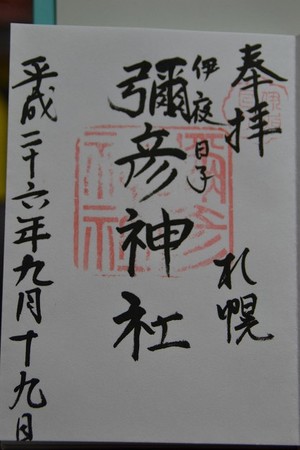 奉拝
札幌
伊夜日子
彌彦神社
平成二十六年九月十九日